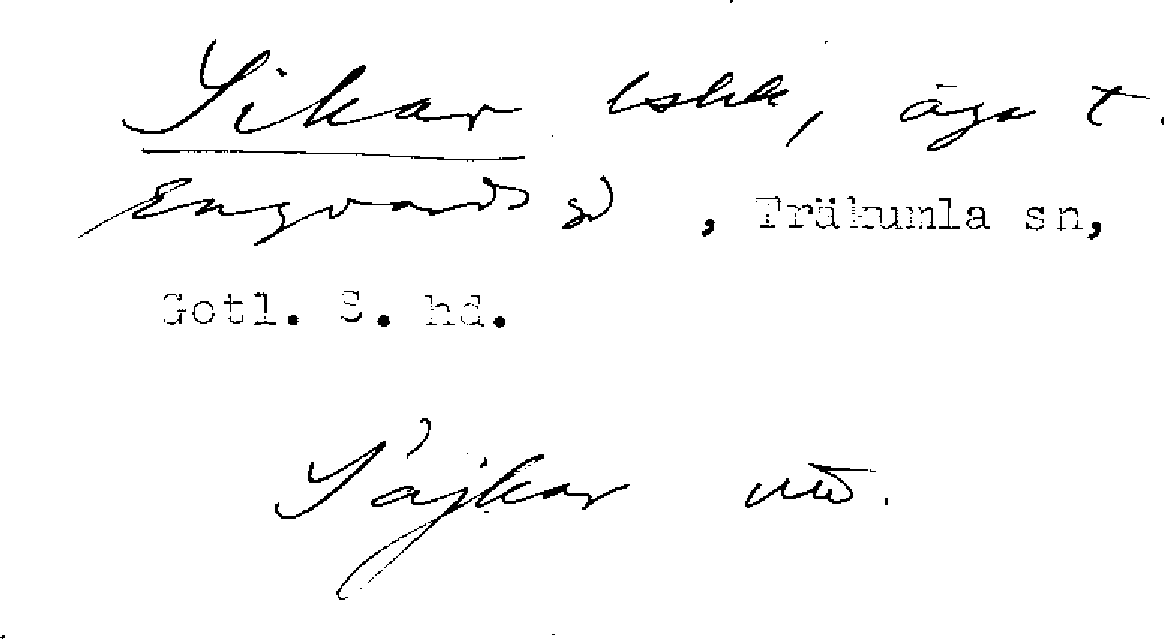 Sikar lskk, äga t.
Engvards gd , Träkumla sn,
Gotl. S. hd.
Sájkar utt.